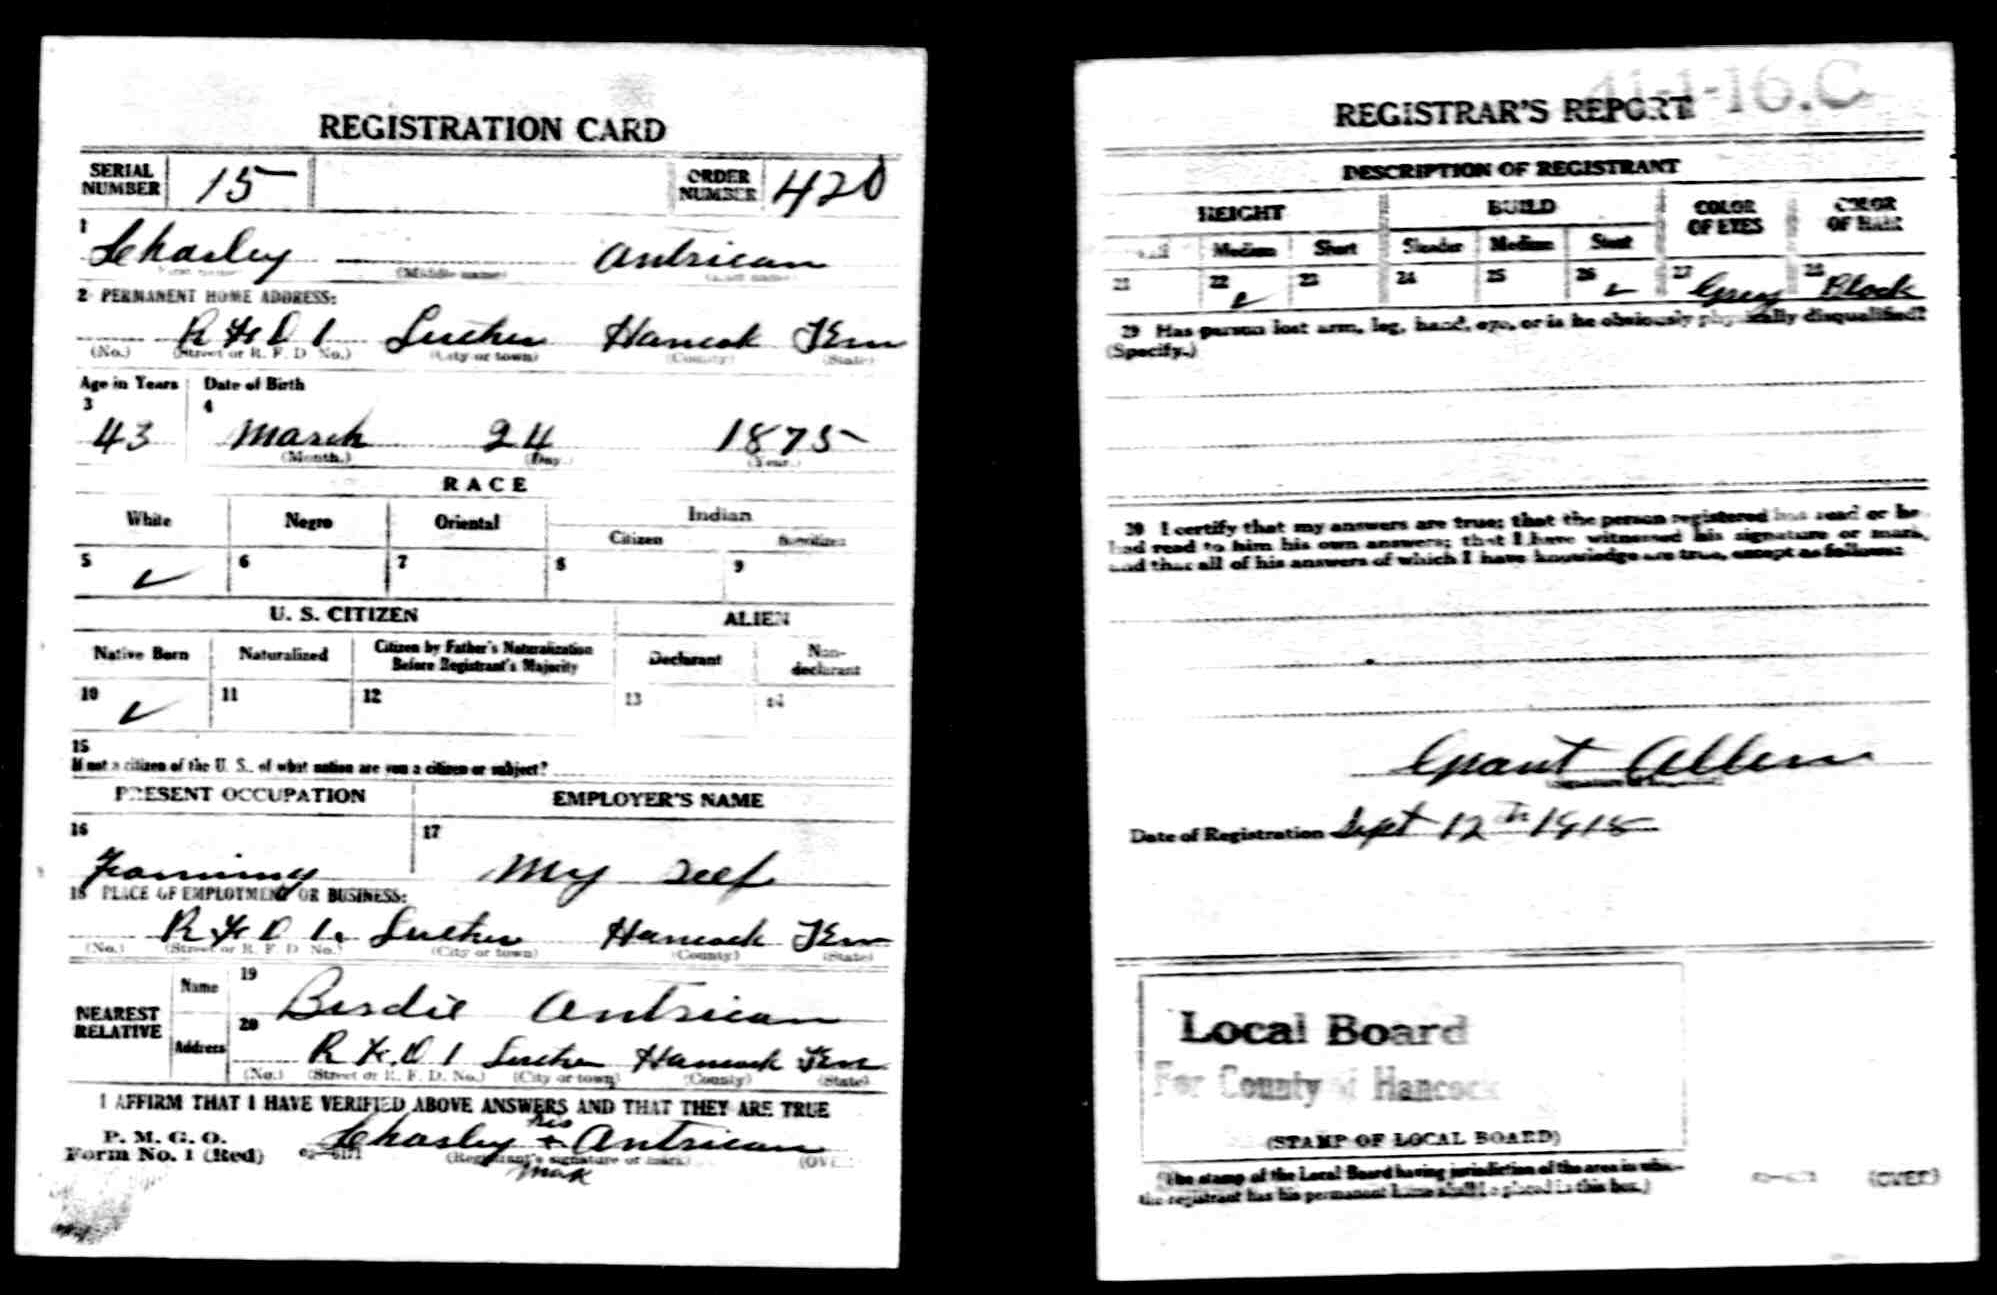 REGISTRATION CARD
SERIAL NUMBER 15 ORDER NUMBER 420
1 Charley Antrican
(Middle name)
2 PERMANENT HOME ADDRESS:
R F D 1 Luther Hancock Tenn
(No.) (Street or R. F. D. No.) (City or town) (County) (State)
Age in Years Date of Birth
3 4
43 March 24 1875
(Month.) (Day.) (Year.)
RACE
White Negro Oriental Indian
Citizen Noncitizen
5 ✓ 6 7 8 9
U. S. CITIZEN ALIEN
Native Born Naturalized Citizen by Father's Naturalization Before Registrant's Majority Declarant Non-declarant
10 ✓ 11 12 13 14
15
If not a citizen of the U. S., of what nation are you a citizen or subject?
PRESENT OCCUPATION EMPLOYER'S NAME
16 17
Farming My Self
18 PLACE OF EMPLOYMENT OR BUSINESS:
R F D 1. Luther Hancock Tenn
(No.) (Street or R. F. D. No.) (City or town) (County) (State)
NEAREST RELATIVE Name 19 Birdie Antrican
Address 20 R F. D 1 Luther Hancock Tenn
(No.) (Street or R. F. D. No.) (City or town) (County) (State)
I AFFIRM THAT I HAVE VERIFIED ABOVE ANSWERS AND THAT THEY ARE TRUE
his
P. M. G. O. Charley + Antrican
Form No. 1 (Red) (Registrant's signature or mark) (OVER)
mark
REGISTRAR'S REPORT
41-1-16.C
DESCRIPTION OF REGISTRANT
HEIGHT BUILD COLOR OF EYES COLOR OF HAIR
Tall Medium Short Slender Medium Stout
21 22 ✓ 23 24 25 26 ✓ 27 Grey 28 Black
29 Has person lost arm, leg, hand, eye, or is he obviously physically disqualified?
(Specify.)
30 I certify that my answers are true; that the person registered has read or has
had read to him his own answers; that I have witnessed his signature or mark,
and that all of his answers of which I have knowledge are true, except as follows:
Grant Allen
(Signature of Registrar)
Date of Registration Sept 12th 1918
Local Board
For County of Hancock
(STAMP OF LOCAL BOARD)
(The stamp of the Local Board having jurisdiction of the area in which
the registrant has his permanent home shall be placed in this box.)
(OVER)